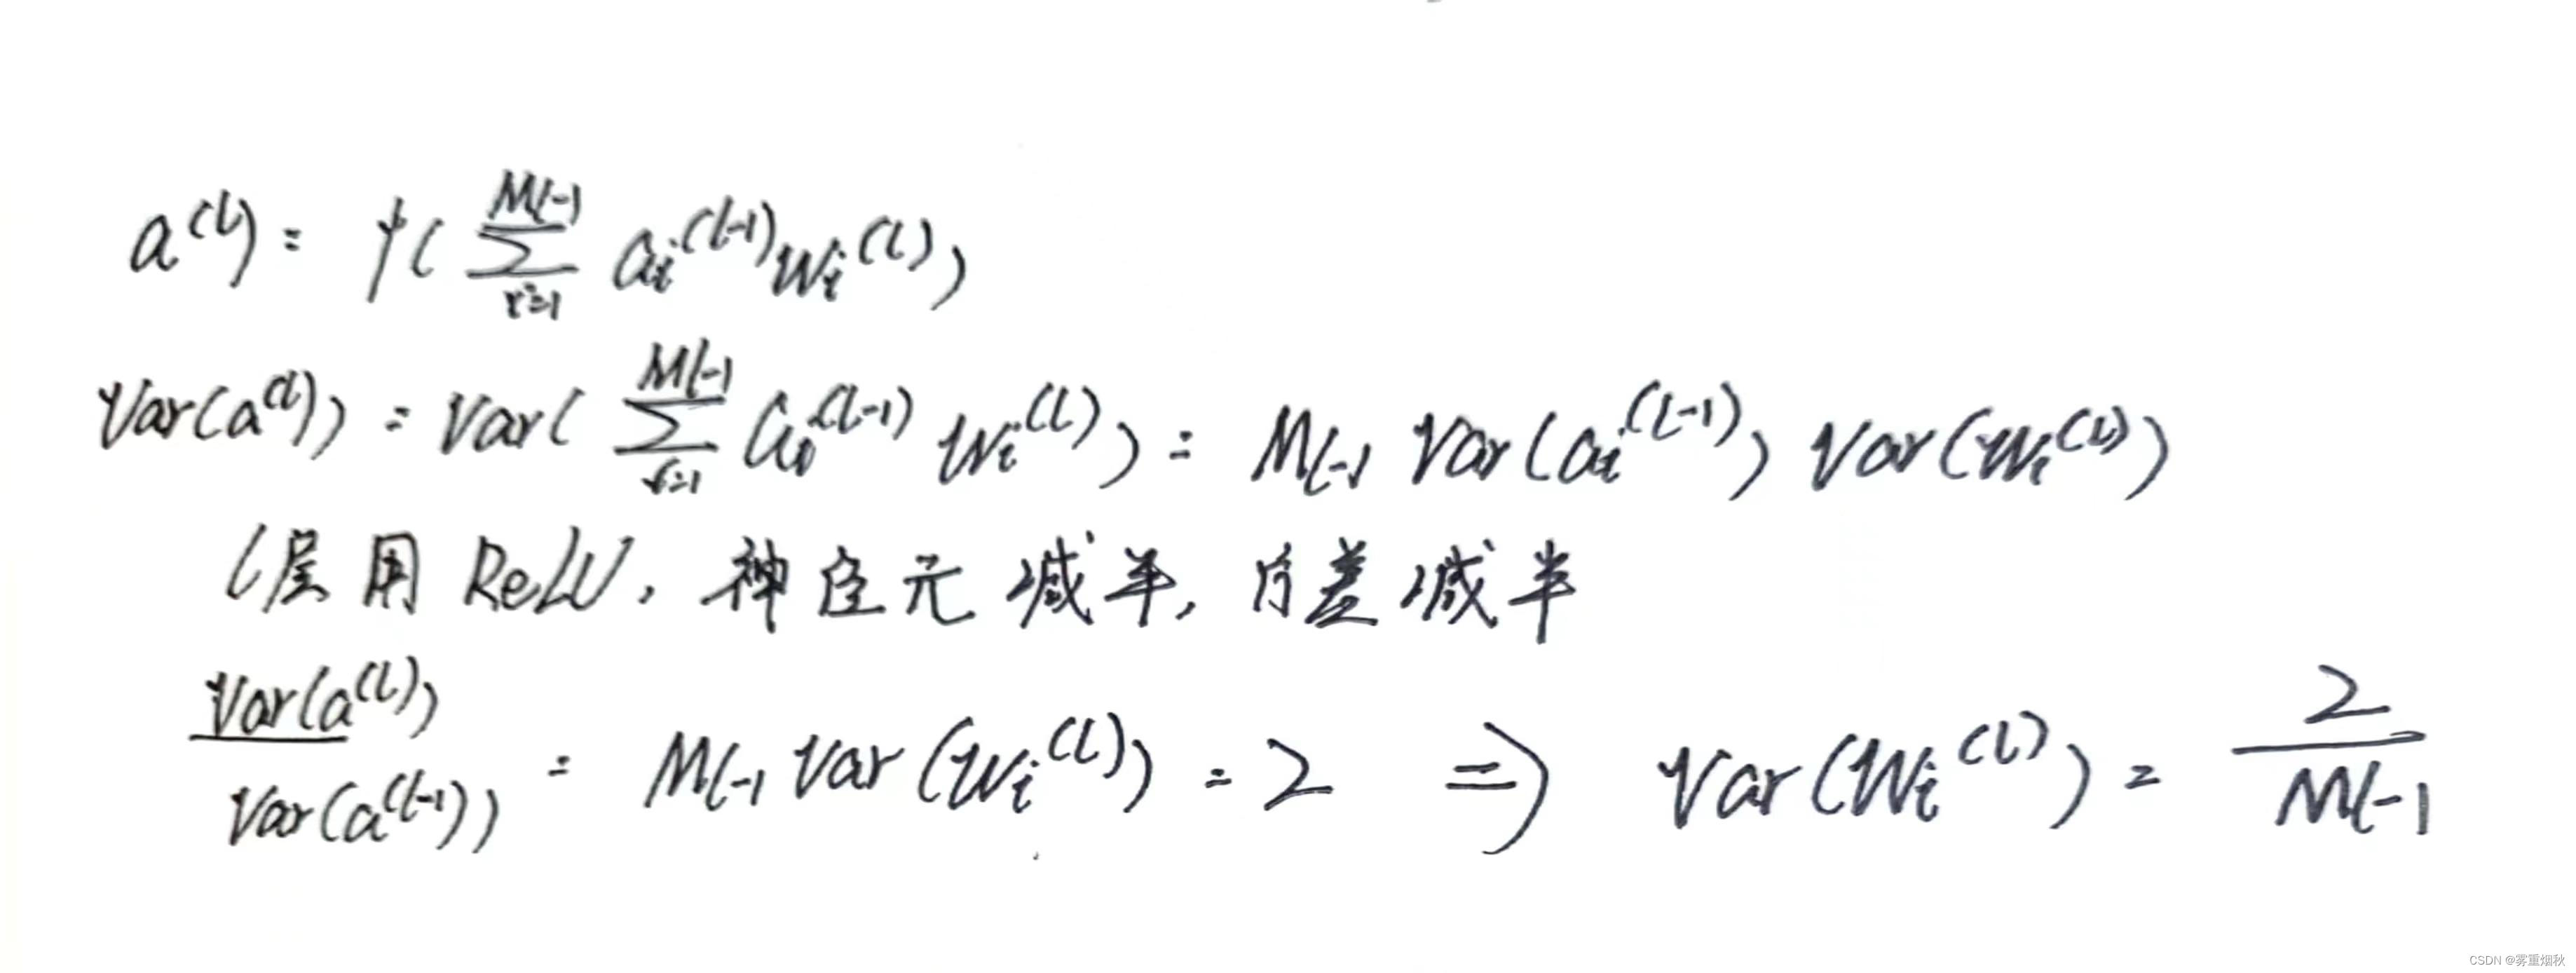 a^(l) = f( ∑_{i=1}^{M_{l-1}} a_i^(l-1) w_i^(l) )
Var(a^(l)) = Var( ∑_{i=1}^{M_{l-1}} a_i^(l-1) w_i^(l) ) = M_{l-1} Var(a_i^(l-1)) Var(w_i^(l))
l层用 ReLU, 神经元减半, 方差减半
Var(a^(l)) / Var(a^(l-1)) = M_{l-1} Var(w_i^(l)) = 2 ⇒ Var(w_i^(l)) = 2 / M_{l-1}
CSDN @雾重烟秋